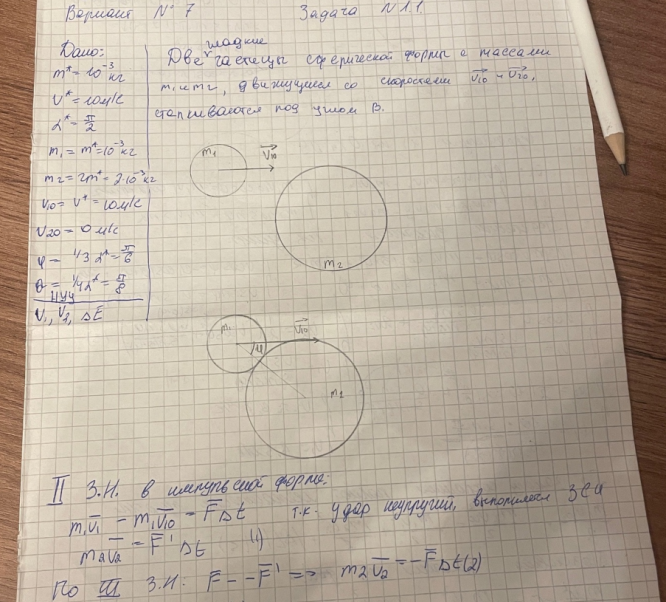 Вариант № 7 Задача № 1.1
Дано:
m* = 10⁻³ кг
V* = 10 м/с
α* = π/2
m₁ = m* = 10⁻³ кг
m₂ = 2m* = 2·10⁻³ кг
V₁₀ = V* = 10 м/с
V₂₀ = 0 м/с
φ = 1/3 α* = π/6
θ = 1/4 α* = π/8
V₁, V₂, ΔE
гладкие
Две частицы сферической формы с массами
m₁ и m₂, движущиеся со скоростями V₁₀ и V₂₀,
сталкиваются под углом β.
m₁
V₁₀
m₂
m₁
V₁₀
φ
m₂
II З.Н. в импульсной форме:
m₁V₁ – m₁V₁₀ = FΔt т.к. удар неупругий, выполняем ЗСИ
m₂V₂ = F'Δt (1)
По III З.Н: F = -F' => m₂V₂ = -FΔt (2)